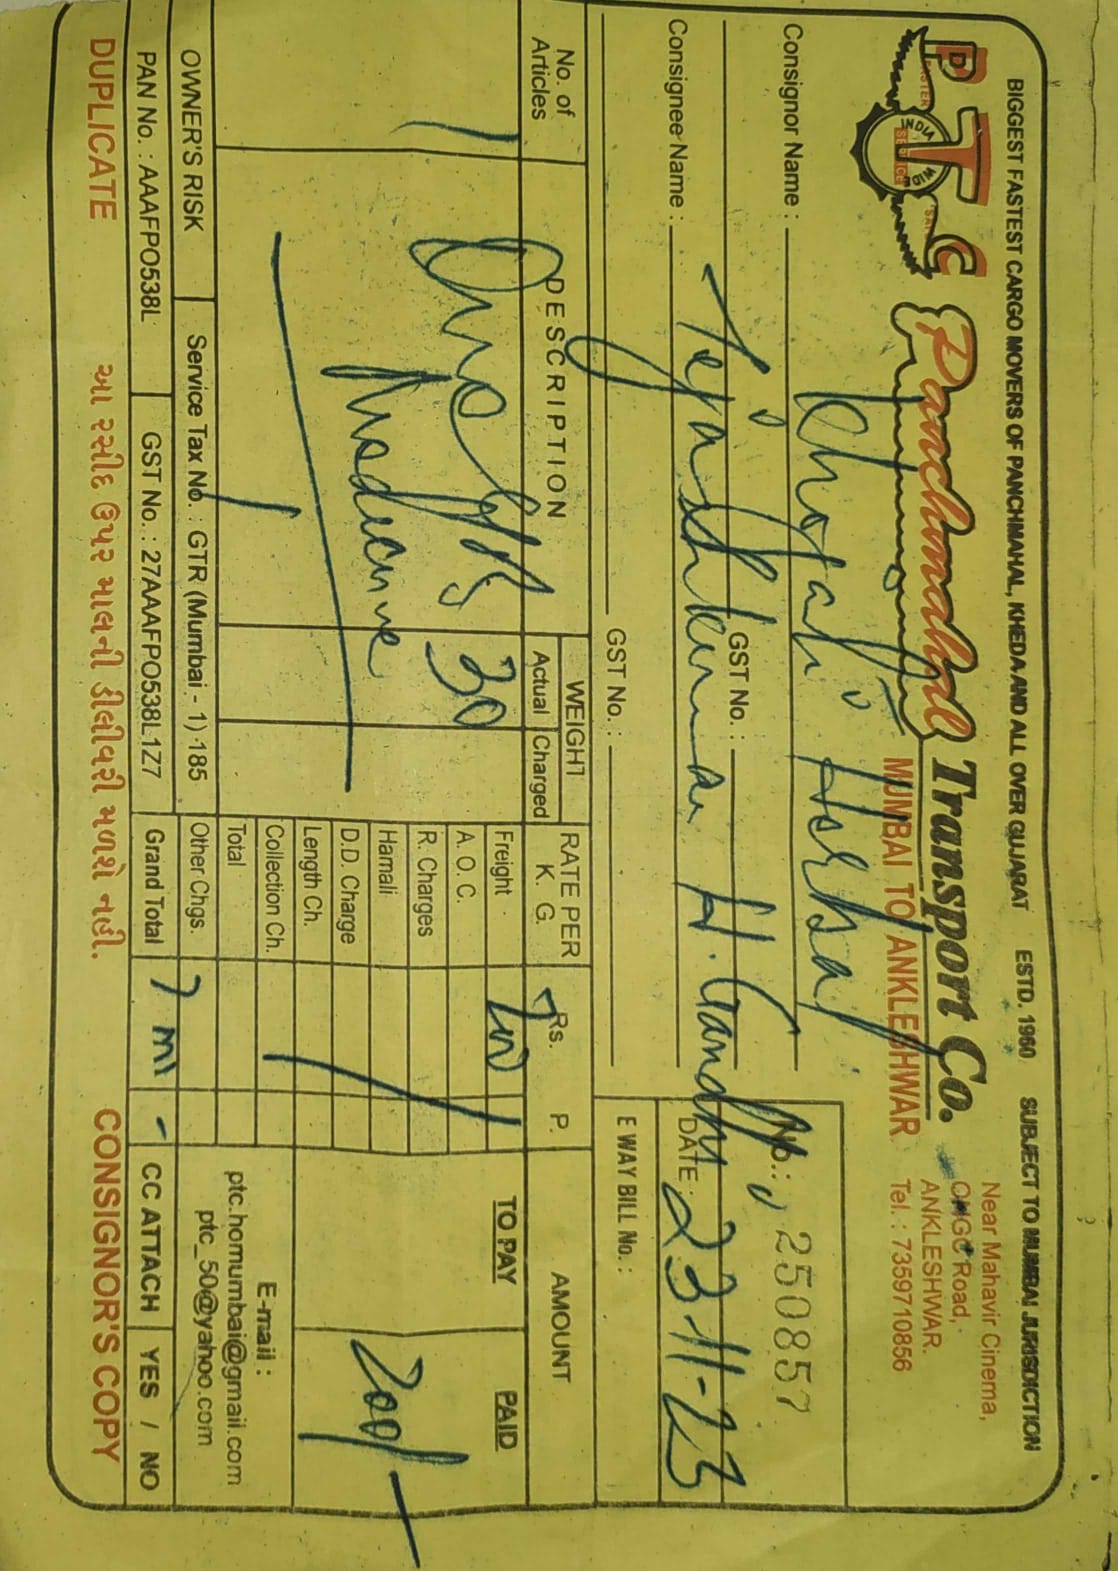 BIGGEST FASTEST CARGO MOVERS OF PANCHMAHAL, KHEDA AND ALL OVER GUJARAT ESTD. 1960 SUBJECT TO MUMBAI JURISDICTION
PTC
INDIA WIDE
SERVICE
Panchmahal Transport Co.
MUMBAI TO ANKLESHWAR
Near Mahavir Cinema,
ONGC Road,
ANKLESHWAR.
Tel. : 7359710856
Consignor Name : Chotani Herbal
GST No. :
No. : 250857
Consignee Name : Tejashkumar H. Gandhi
DATE : 23-11-23
GST No. :
E WAY BILL No. :
No. of Articles
DESCRIPTION
WEIGHT
Actual Charged
RATE PER K. G.
Rs. P.
AMOUNT
TO PAY PAID
1
One
30
Freight
A. O. C.
R. Charges
Hamali
D.D. Charge
Length Ch.
Collection Ch.
Total
Other Chgs.
200/-
E-mail :
ptc.homumbai@gmail.com
ptc_50@yahoo.com
OWNER'S RISK
Service Tax No. : GTR (Mumbai - 1) 185
PAN No. : AAAFPO538L
GST No. : 27AAAFPO538L1Z7
Grand Total
CC ATTACH YES / NO
DUPLICATE
આ રસીદ ઉપર માલની ડીલીવરી મળશે નહી.
CONSIGNOR'S COPY